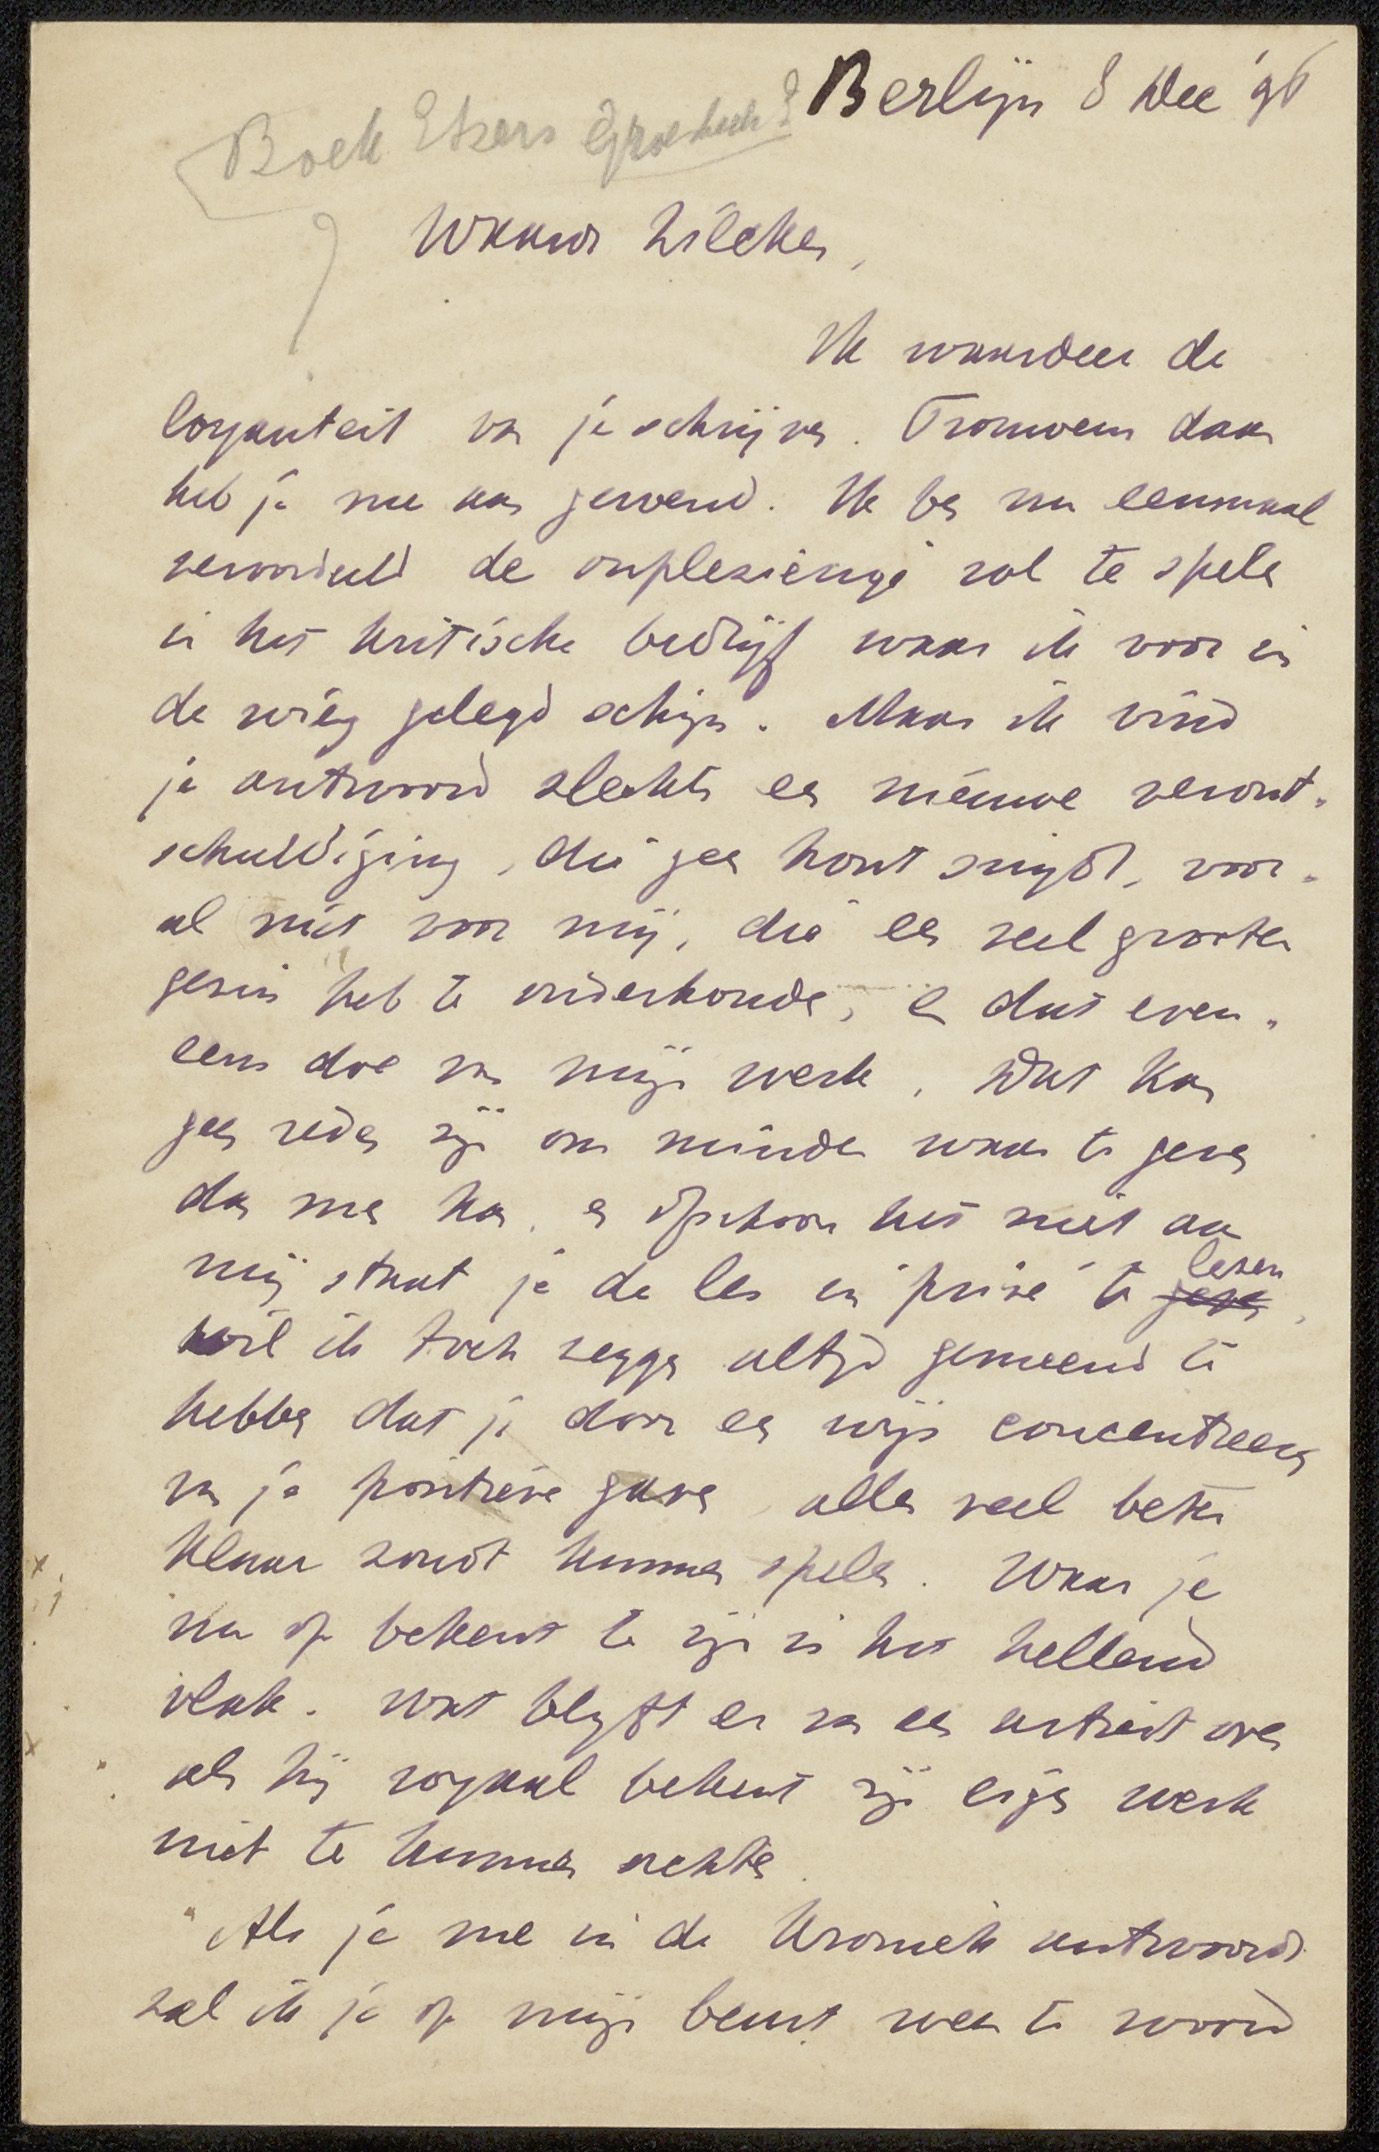 Berlijn 8 Dec '96
Boek Etsers
Waarde Zilcken,
Ik waardeer de
loyauteit van je schrijven. Trouwens daar
heb je me aan gewend. Ik ben nu eenmaal
veroordeeld de onplezierige rol te spelen
in het kritische bedrijf waar ik voor in
de wieg gelegd schijn. Maar ik vind
je antwoord slechts een nieuwe veront-
schuldiging, die geen hout snijdt, voor-
al niet voor mij, die een veel grooter
gezin heb te onderhouden, en dat even-
eens doe van mijn werk. Dat kan
geen reden zijn om minder waar te geven
dan men kan, en ofschoon het niet aan
mij staat je de les en privé te geven lezen,
wil ik toch zeggen altijd gemeend te
hebben dat je door een wijs concentreeren
van je positieve gaven alles veel beter
klaar zoudt kunnen spelen. Waar je
nu op bekent te zijn is het hellend
vlak. Wat blijft er van een artiest over
als hij royaal bekent zijn eigen werk
niet te kunnen achten.
Als je me in de Kroniek antwoordt
zal ik je op mijn beurt weer te woord